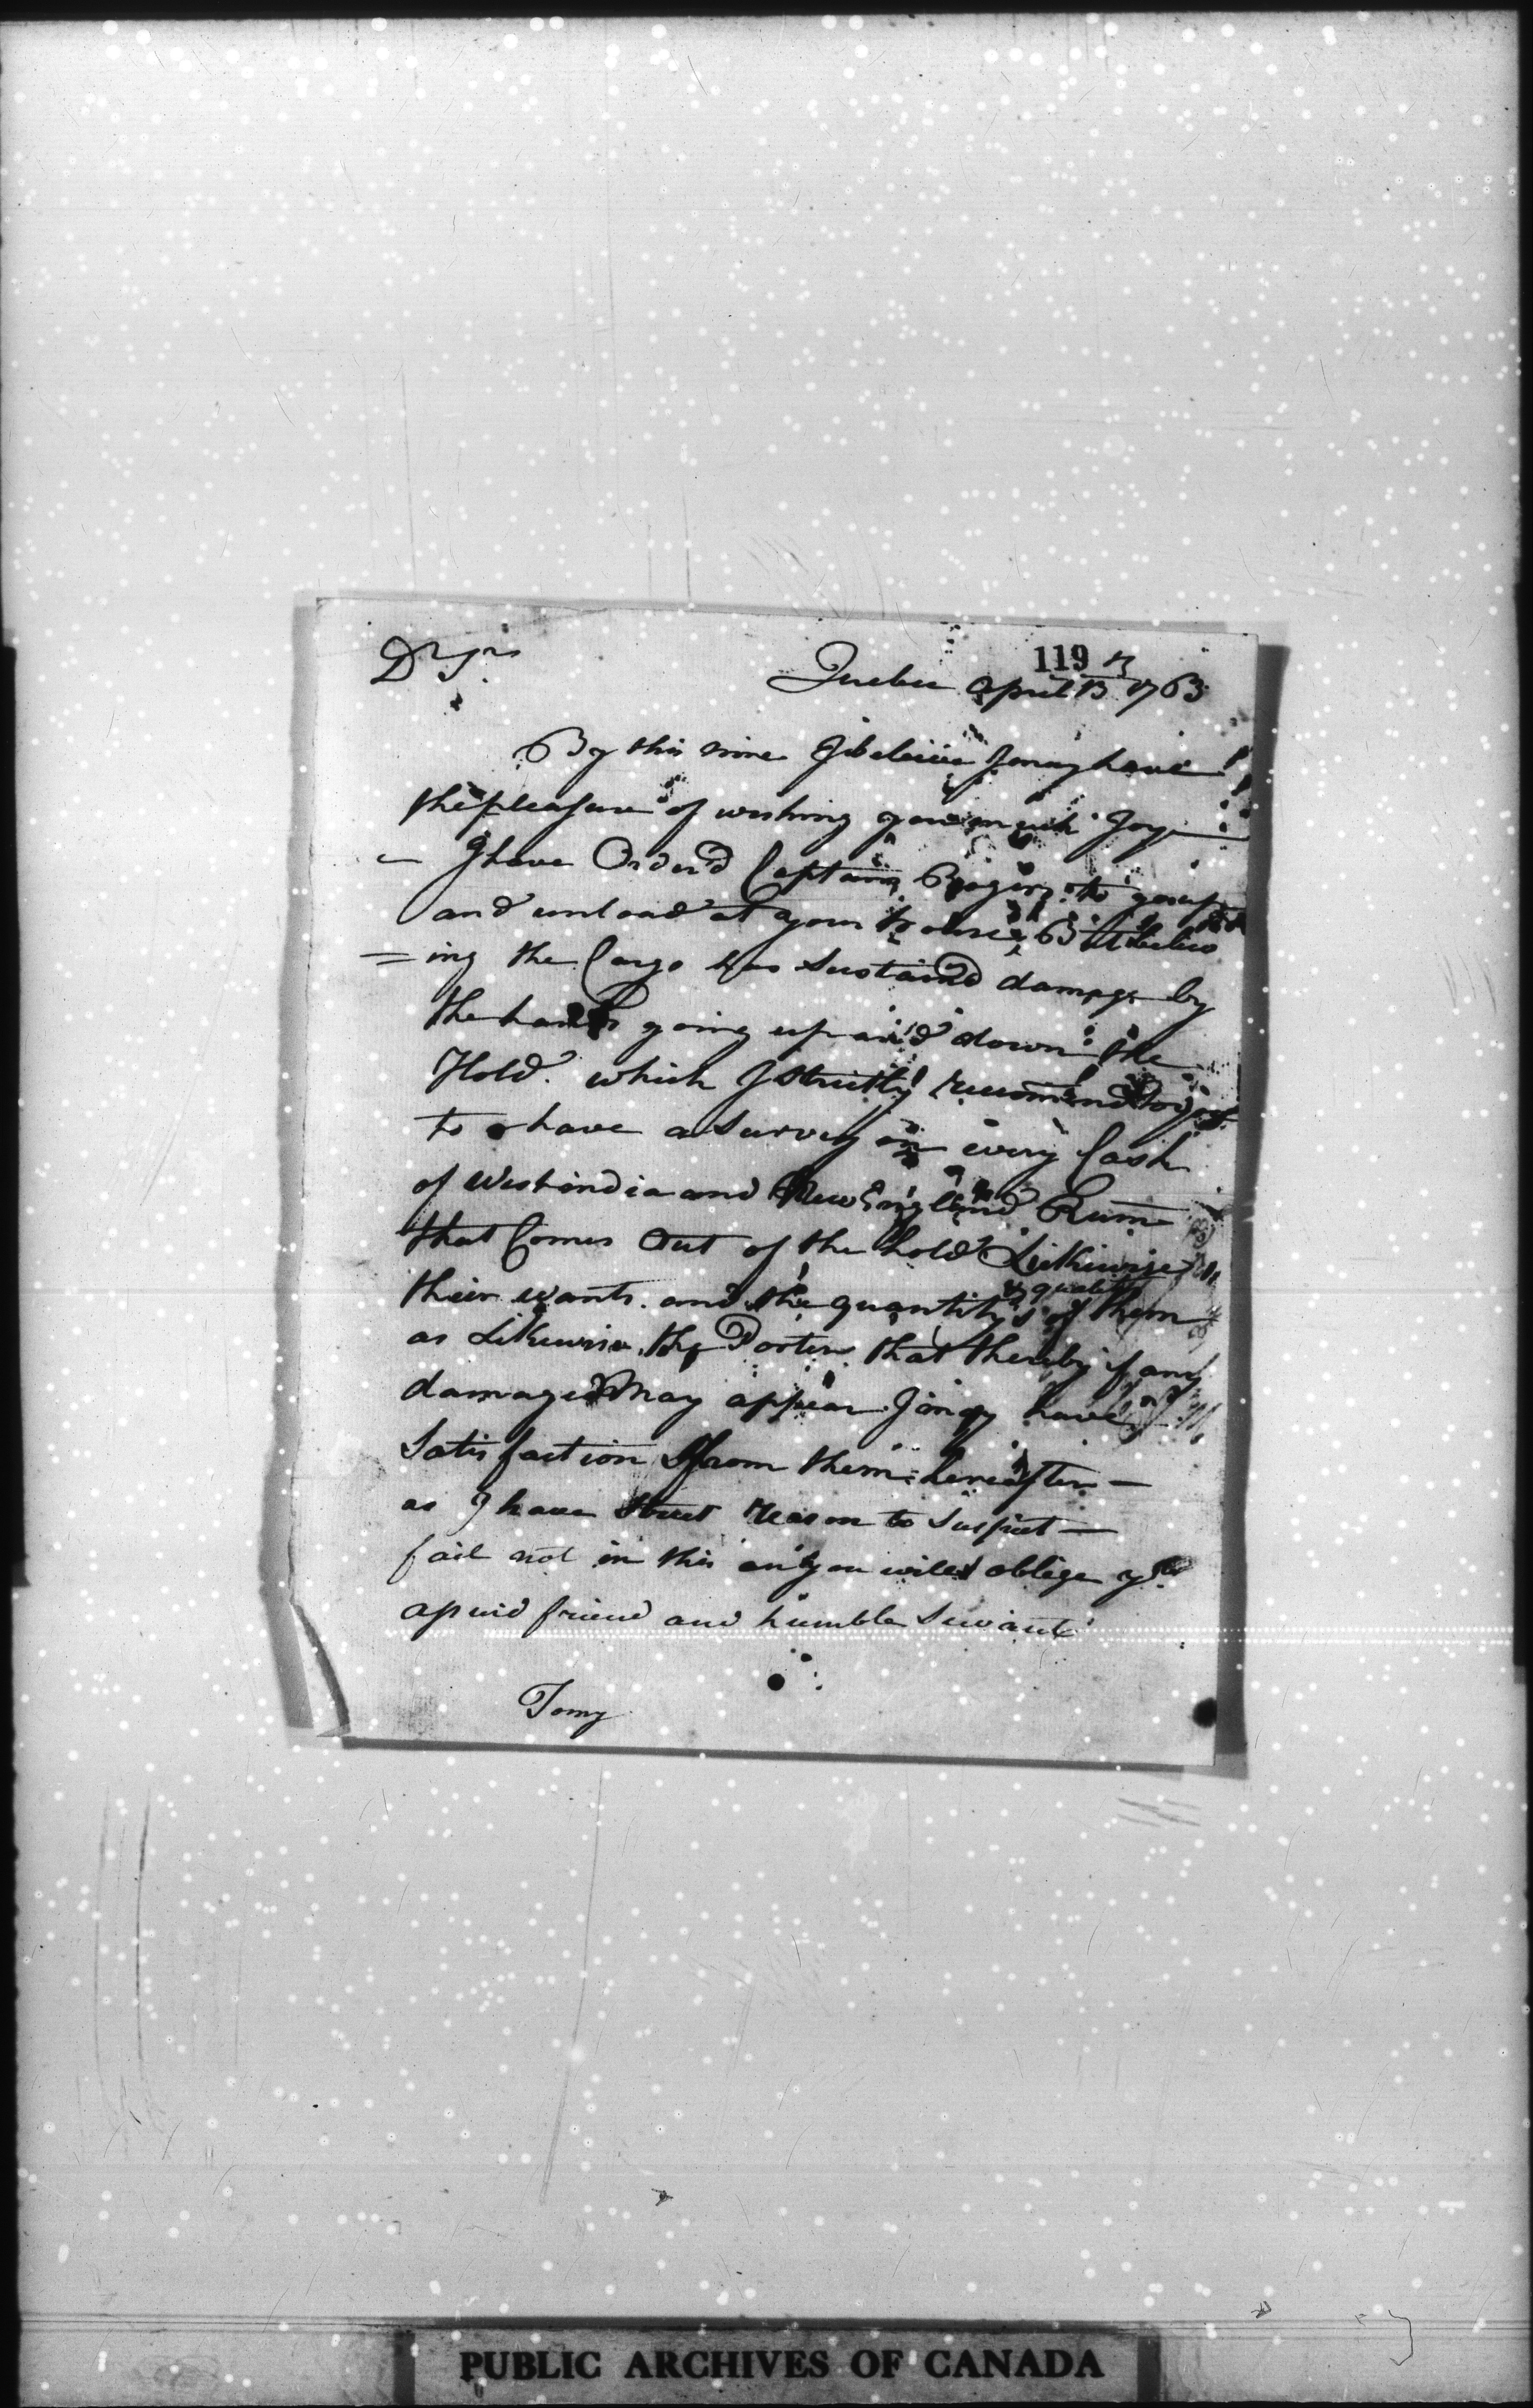 119
Dr Sir
Quebec April 13 1763
By this time I beleive I may have
the pleasure of wishing you much Joy
I have Order'd Captain Rogers to go up
and unload at your house But beleiv
=ing the Cargo has Sustaind damage by
the hands going up and down the
Hold. which I strictly recommend
to have a Survey on every Cask
of West india and New England Rum
that Comes Out of the hold Likewise
their wants. and the quantitys & quality of them
as Likewise the Porter that thereby if any
damages May appear I may have
Satisfaction from them hereafter —
as I have reason to Suspect —
fail not in this and you will oblige
friend and humble Servant
Tomy
PUBLIC ARCHIVES OF CANADA